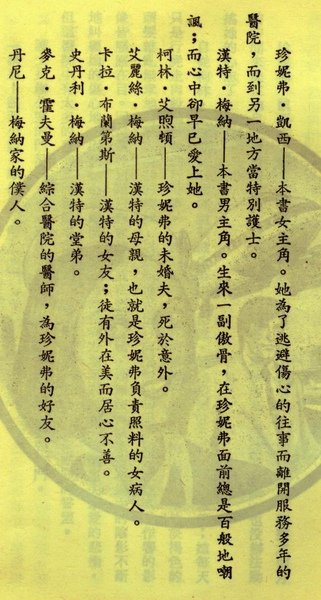 珍妮弗・凱西——本書女主角。她為了逃避傷心的往事而離開服務多年的
醫院，而到另一地方當特別護士。
漢特・梅納——本書男主角。生來一副傲骨，在珍妮弗面前總是百般地嘲
諷；而心中卻早已愛上她。
柯林・艾煦頓——珍妮弗的未婚夫，死於意外。
艾麗絲・梅納——漢特的母親，也就是珍妮弗負責照料的女病人。
卡拉・布蘭第斯——漢特的女友；徒有外在美而居心不善。
史丹利・梅納——漢特的堂弟。
麥克・霍夫曼——綜合醫院的醫師，為珍妮弗的好友。
丹尼——梅納家的僕人。